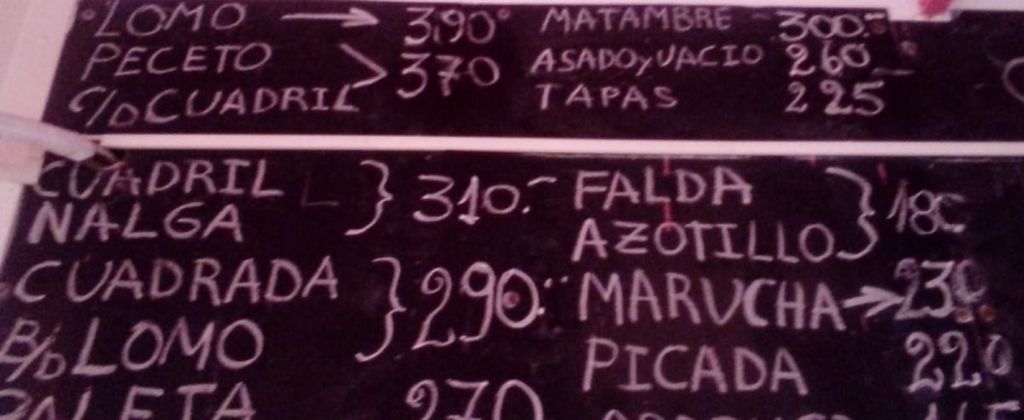 LOMO → 390
PECETO
370
C/D CUADRIL
MATAMBRE - 300.-
ASADO y VACIO 260
TAPAS 225
CUADRIL
NALGA
310.-
CUADRADA
B/D LOMO
290.-
270
FALDA
AZOTILLO
180
MARUCHA → 230
PICADA 220